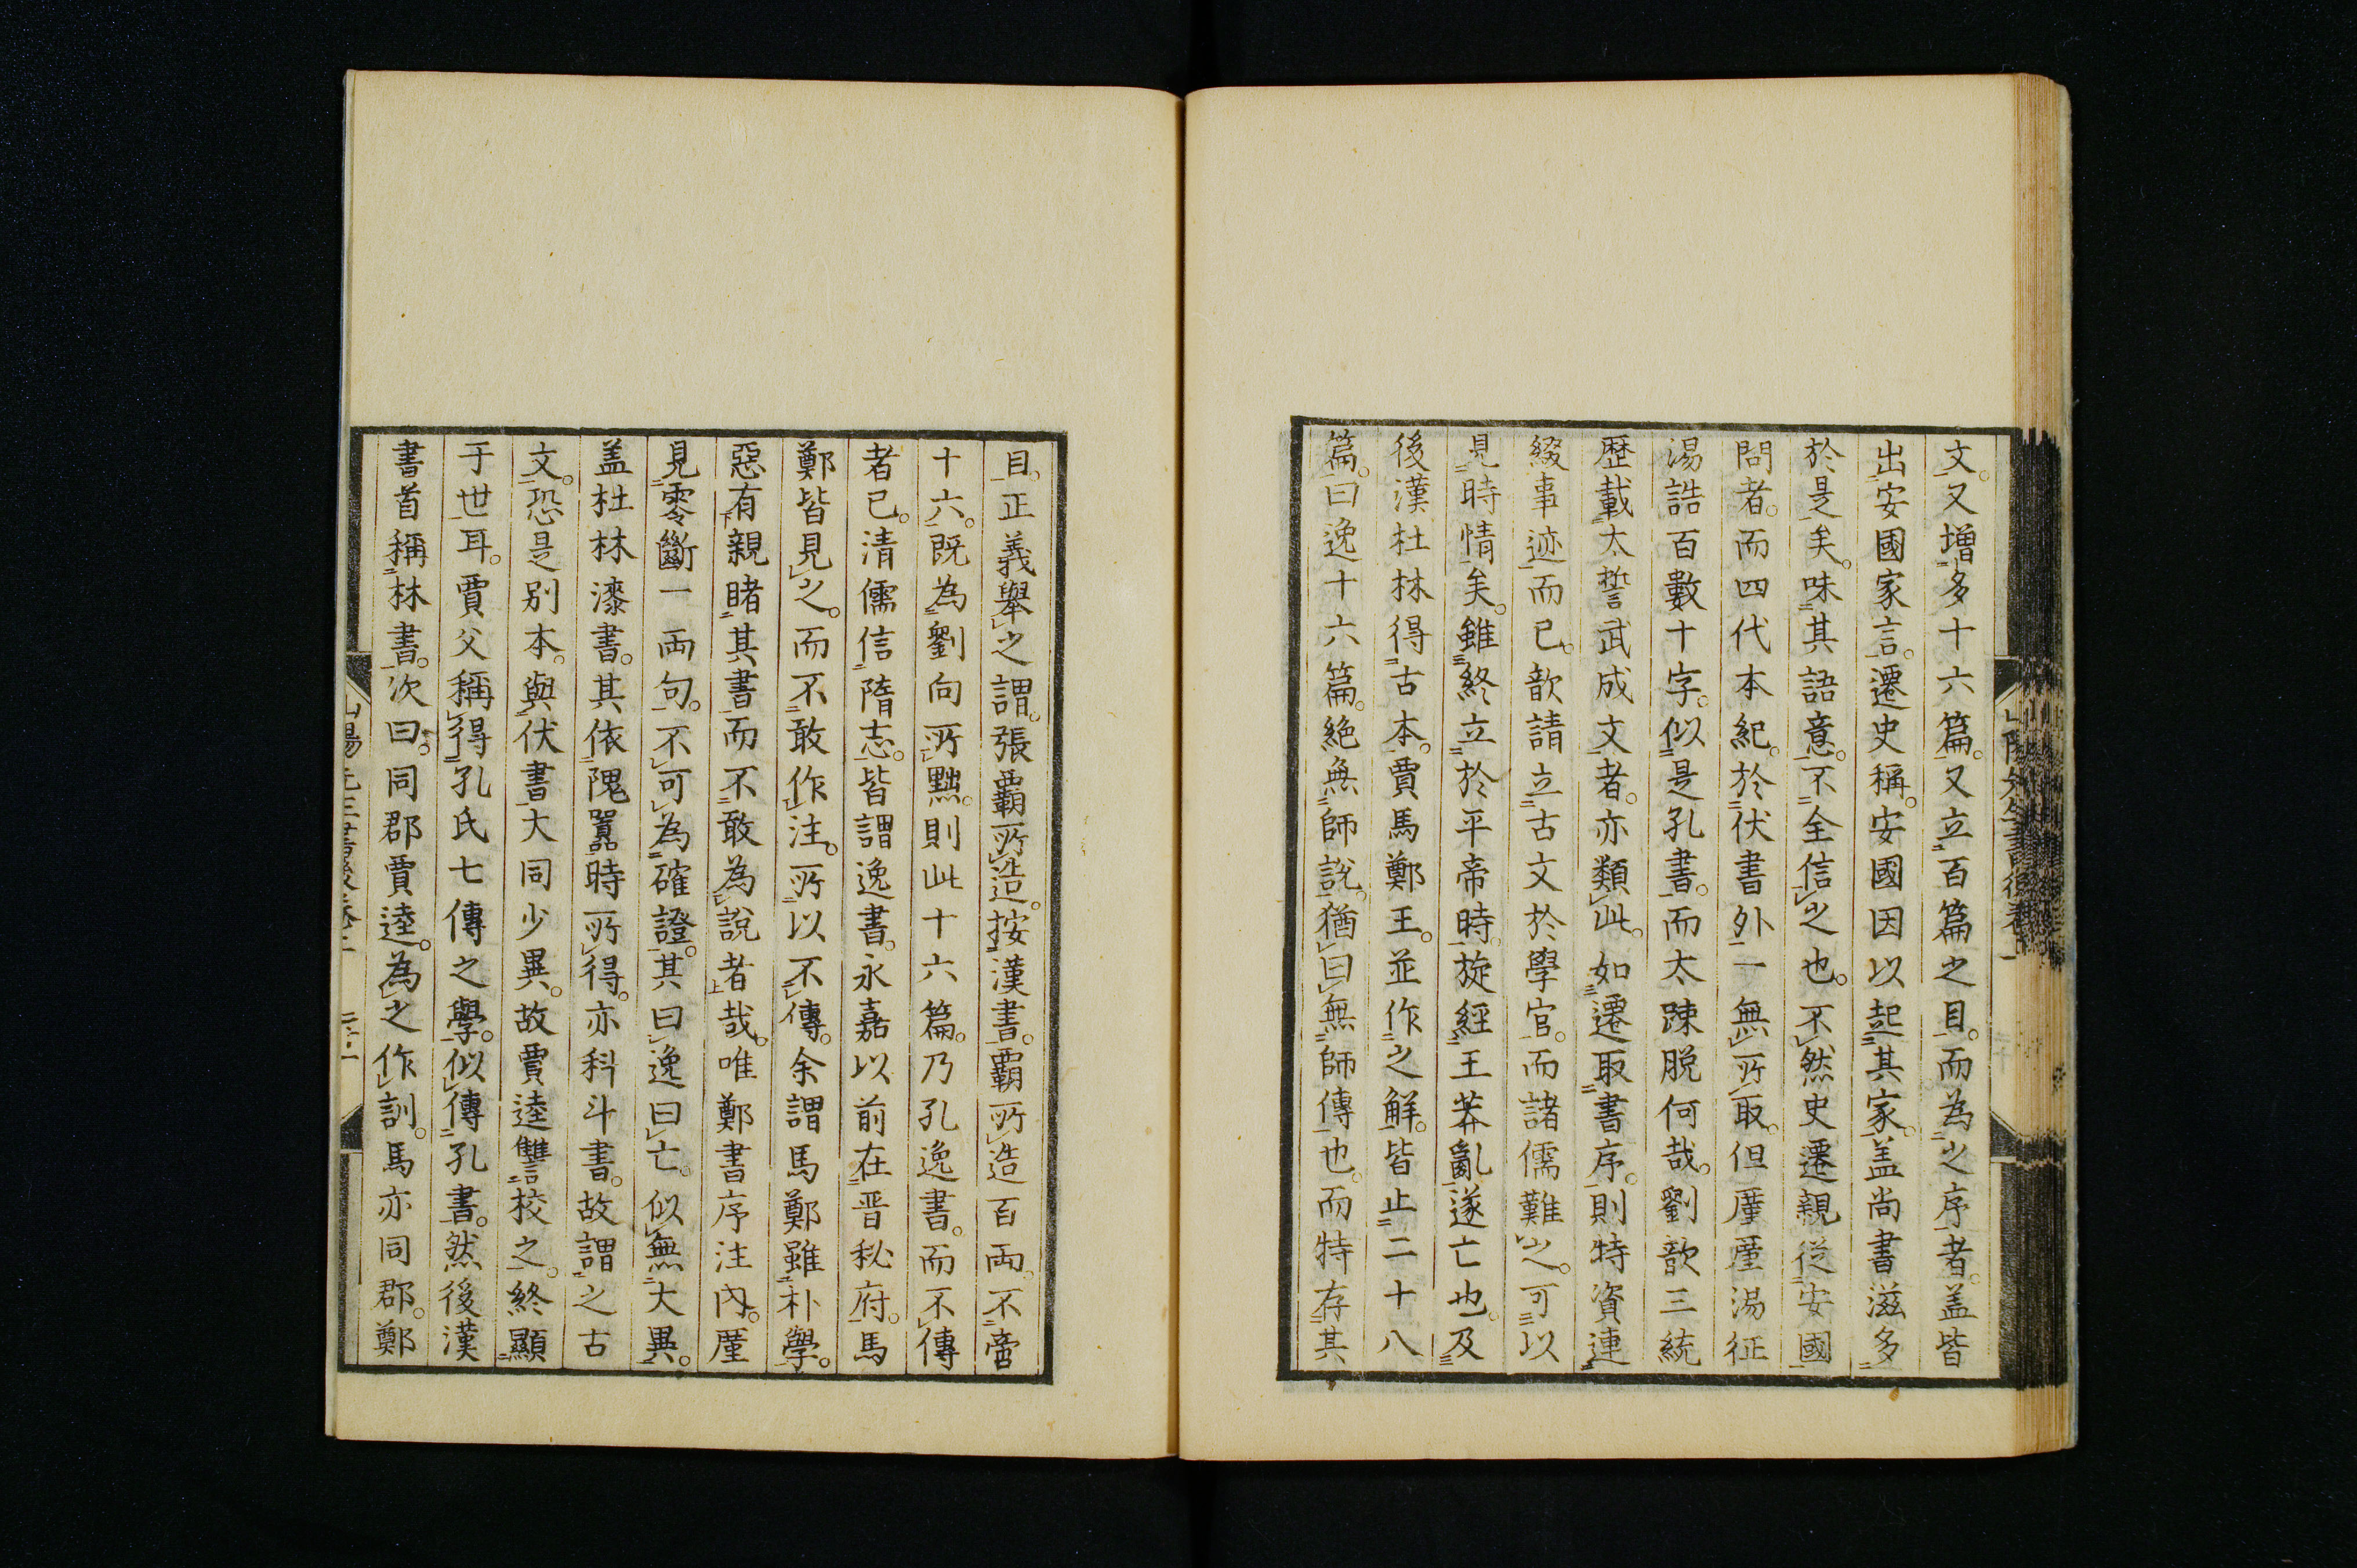 文。又增多十六篇。又立百篇之目。而為之序者。盖皆
出安國家言。遷史稱。安國因以起其家。盖尚書滋多
於是矣。味其語意。不全信之也。不然史遷親從安國
問者。而四代本紀。於伏書外一無所取。但廑廑湯征
湯誥百數十字。似是孔書。而太踈脫何哉。劉歆三統
歷載太誓武成文者。亦類此。如遷取書序。則特資連
綴事迹而已。歆請立古文於學官。而諸儒難之。可以
見時情矣。雖終立於平帝時。旋經王莽亂遂亡也。及
後漢杜林得古本。賈馬鄭王。並作之解。皆止二十八
篇。曰逸十六篇。絕無師說。猶曰無師傳也。而特存其
目。正義舉之謂。張霸所造。按漢書。霸所造百兩。不啻
十六。既為劉向所黜。則此十六篇。乃孔逸書。而不傳
者已。清儒信隋志。皆謂逸書。永嘉以前在晋秘府。馬
鄭皆見之。而不敢作注。所以不傳。余謂馬鄭雖朴學。
惡有親睹其書而不敢為說者哉。唯鄭書序注內。廑
見零斷一両句。不可為確證。其曰逸曰亡。似無大異。
盖杜林漆書。其依隗囂時所得。亦科斗書。故謂之古
文。恐是別本。與伏書大同少異。故賈逵讐校之。終顯
于世耳。賈父稱得孔氏七傳之學。似傳孔書。然後漢
書首稱林書。次曰。同郡賈逵。為之作訓。馬亦同郡。鄭